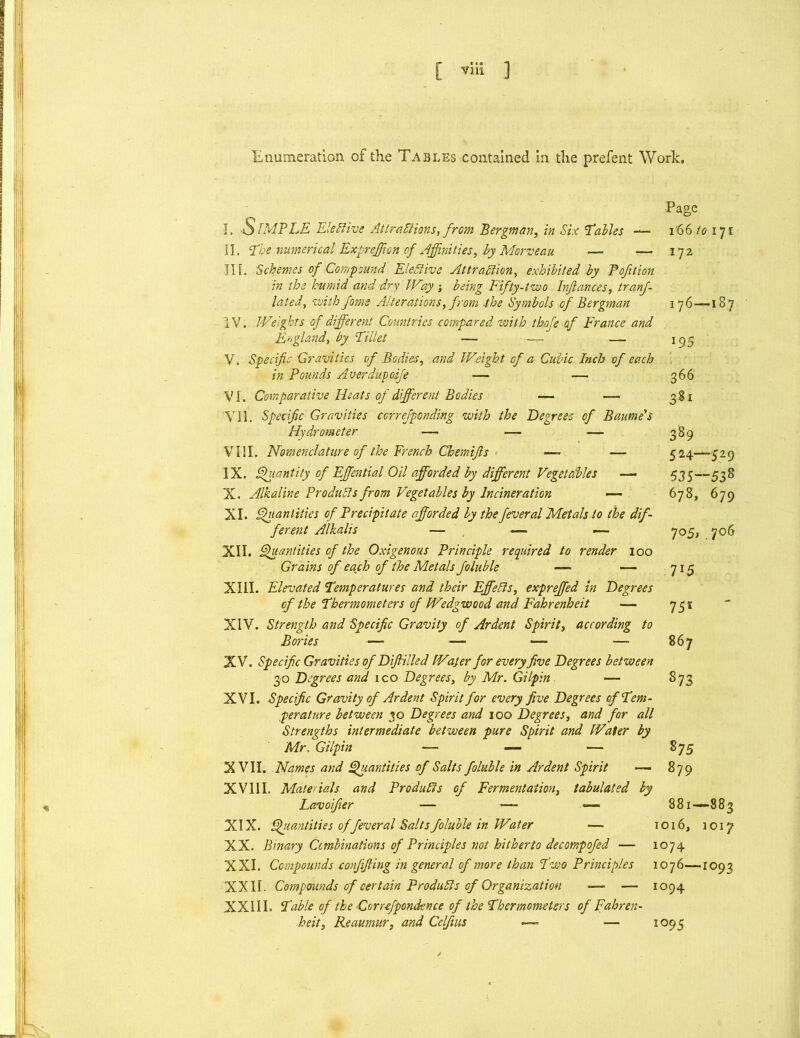 [ viii ]
Enumeration of the TABLES contained in the preſent Work.
Page
I. SIMPLE Elective Attractions, from Bergman, in Six Tables — 166 to 171
II. The numerical Expreſſion of Affinities, by Morveau — — 172
III. Schemes of Compound Elective Attraction, exhibited by Poſition
in the humid and dry Way; being Fifty-two Inſtances, tranſ-
lated, with ſome Alterations, from the Symbols of Bergman 176—187
IV. Weights of different Countries compared with thoſe of France and
England, by Tillet — — — 195
V. Specific Gravities of Bodies, and Weight of a Cubic Inch of each
in Pounds Averdupoiſe — — 366
VI. Comparative Heats of different Bodies — — 381
VII. Specific Gravities correſponding with the Degrees of Baume's
Hydrometer — — — 389
VIII. Nomenclature of the French Chemiſts — — 524—529
IX. Quantity of Eſſential Oil afforded by different Vegetables — 535—538
X. Alkaline Products from Vegetables by Incineration — 678, 679
XI. Quantities of Precipitate afforded by the ſeveral Metals to the dif-
ferent Alkalis — — — 705, 706
XII. Quantities of the Oxigenous Principle required to render 100
Grains of each of the Metals ſoluble — — 715
XIII. Elevated Temperatures and their Effects, expreſſed in Degrees
of the Thermometers of Wedgwood and Fahrenheit — 751
XIV. Strength and Specific Gravity of Ardent Spirit, according to
Bories — — — — 867
XV. Specific Gravities of Diſtilled Water for every five Degrees between
30 Degrees and 100 Degrees, by Mr. Gilpin — 873
XVI. Specific Gravity of Ardent Spirit for every five Degrees of Tem-
perature between 30 Degrees and 100 Degrees, and for all
Strengths intermediate between pure Spirit and Water by
Mr. Gilpin — — — 875
XVII. Names and Quantities of Salts ſoluble in Ardent Spirit — 879
XVIII. Materials and Products of Fermentation, tabulated by
Lavoiſier — — — 881—883
XIX. Quantities of ſeveral Salts ſoluble in Water — 1016, 1017
XX. Binary Combinations of Principles not hitherto decompoſed — 1074
XXI. Compounds conſiſting in general of more than Two Principles 1076—1093
XXII. Compounds of certain Products of Organization — — 1094
XXIII. Table of the Correſpondence of the Thermometers of Fahren-
heit, Reaumur, and Celſius — — 1095